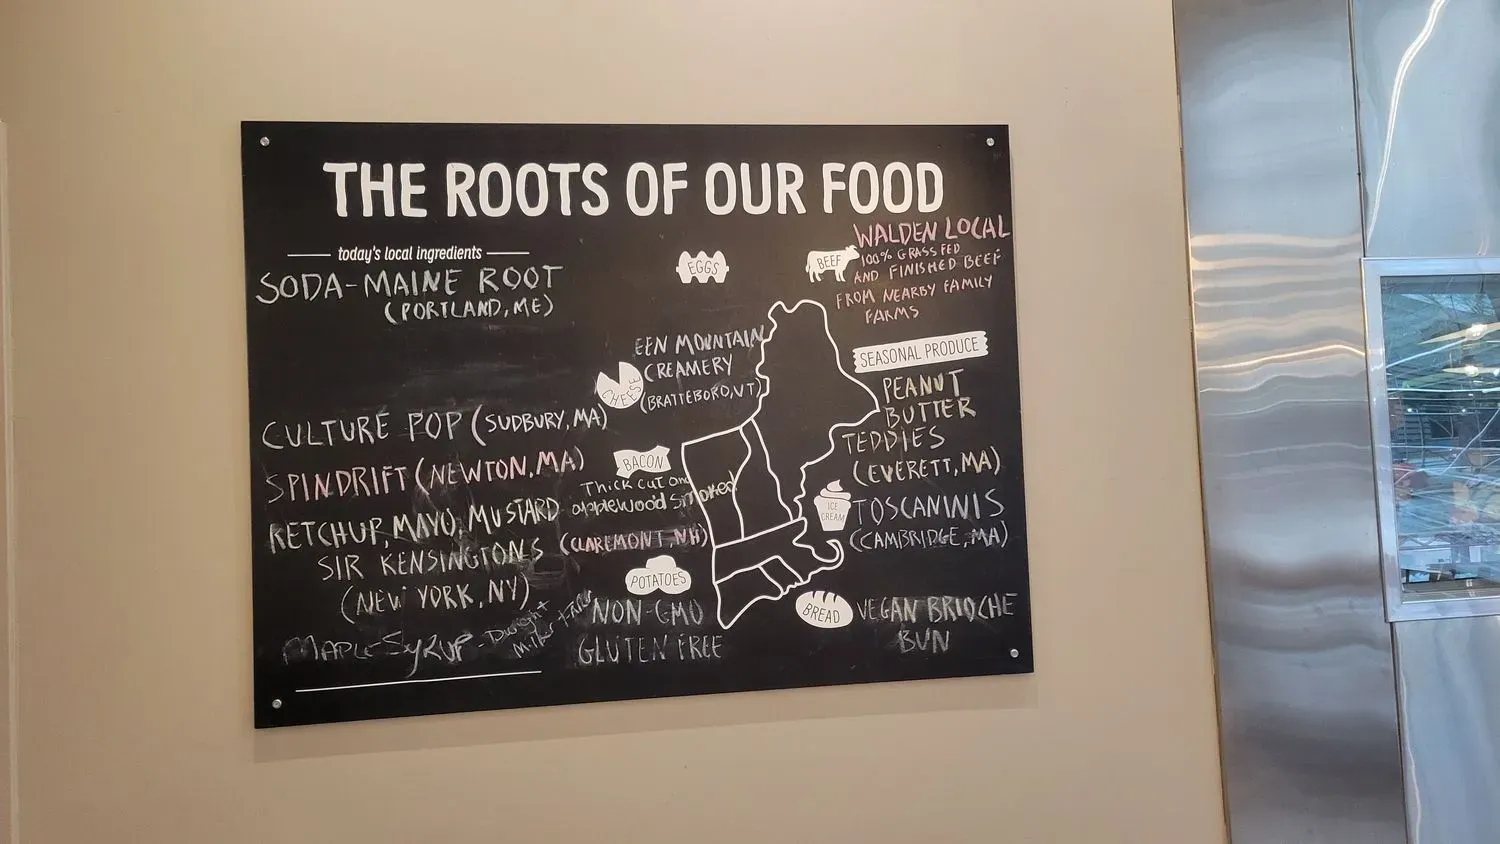 THE ROOTS OF OUR FOOD
today's local ingredients
SODA-MAINE ROOT
(PORTLAND, ME)
CULTURE POP (SUDBURY, MA)
SPINDRIFT (NEWTON, MA)
KETCHUP, MAYO, MUSTARD
SIR KENSINGTONS
(NEW YORK, NY)
MAPLE SYRUP - Dwight
EGGS
EEN MOUNTAIN
CREAMERY
CHEESE
(BRATTEBORO, VT)
BACON
Thick cut and
applewood smoked
(CLAREMONT, NH)
POTATOES
NON-GMO
GLUTEN FREE
BEEF
WALDEN LOCAL
100% GRASS FED
AND FINISHED BEEF
FROM NEARBY FAMILY
FARMS
SEASONAL PRODUCE
PEANUT
BUTTER
TEDDIES
(EVERETT, MA)
ICE
CREAM
TOSCANINIS
(CAMBRIDGE, MA)
BREAD
VEGAN BRIOCHE
BUN